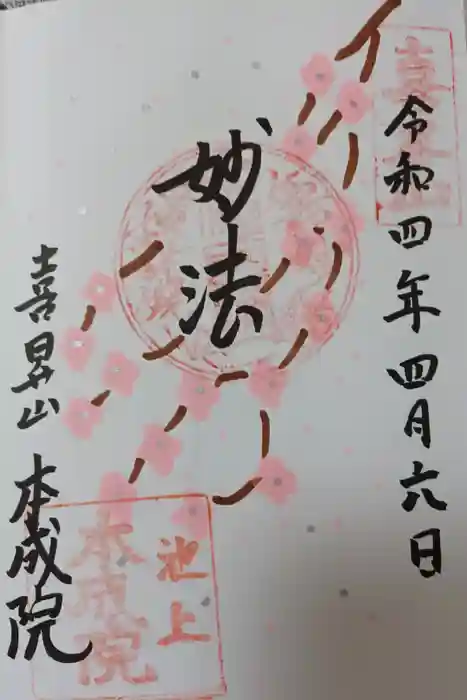 令和四年四月六日
妙法
喜昇山 本成院
池上
本成院